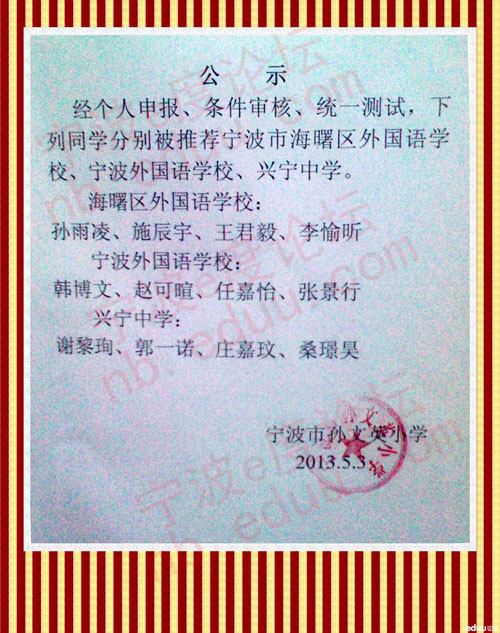 公 示
经个人申报、条件审核、统一测试，下
列同学分别被推荐宁波市海曙区外国语学
校、宁波外国语学校、兴宁中学。
海曙区外国语学校：
孙雨凌、施辰宇、王君毅、李愉昕
宁波外国语学校：
韩博文、赵可暄、任嘉怡、张景行
兴宁中学：
谢黎珣、郭一诺、庄嘉玟、桑璟昊
宁波市孙文英小学
2013.5.3
宁波e度论坛
nb.eduu.com